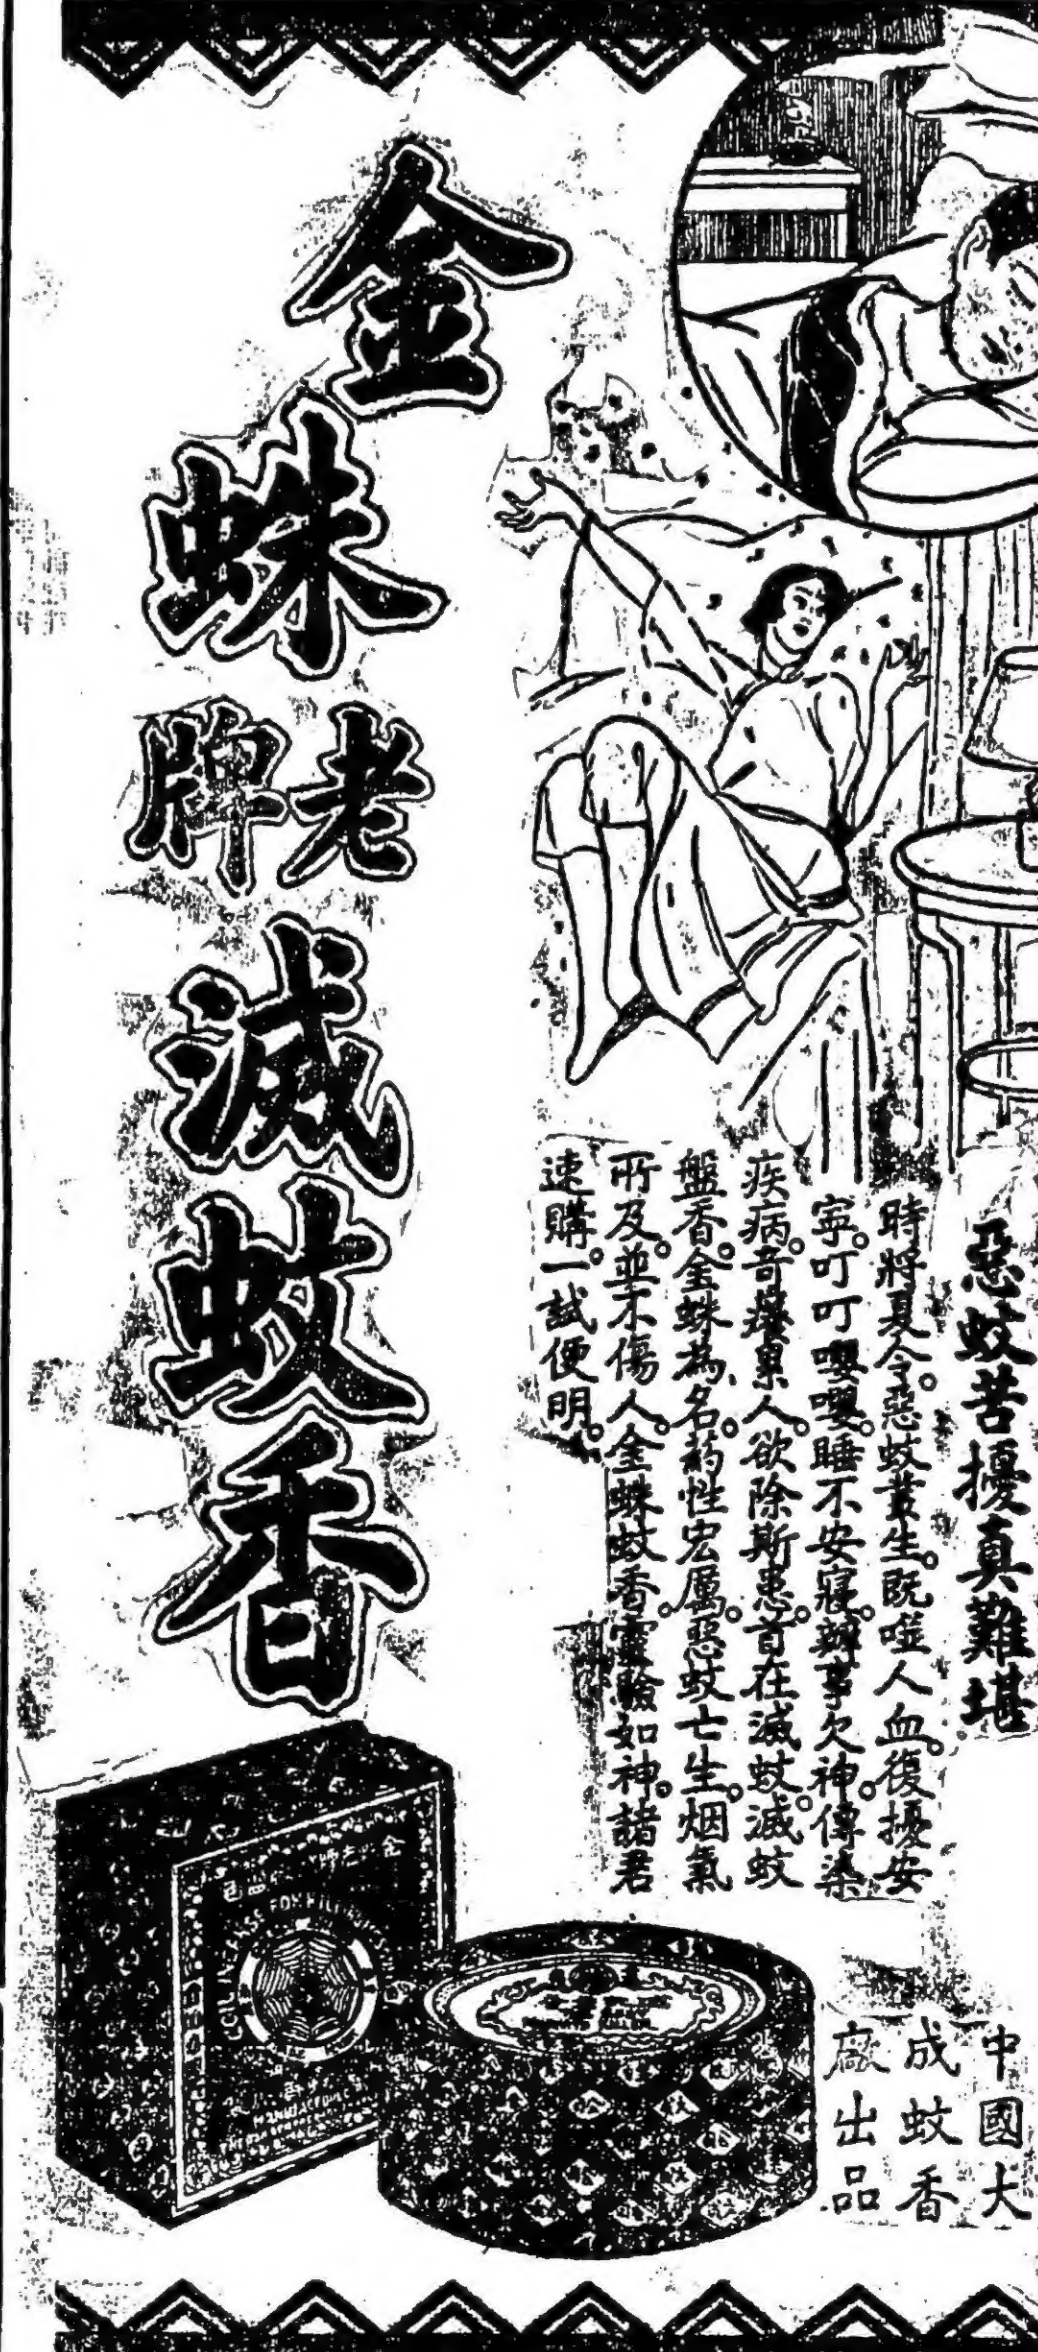 惡蚊苦擾真難堪
時將夏令。惡蚊叢生。既噬人血。復擾安
寧。叮叮嚶嚶。睡不安寢。辦事欠神。傳染
疾病。奇癢累人。欲除斯患。首在滅蚊。滅蚊
盤香。金蛛為名。葯性宏厲。惡蚊亡生。烟氣
所及。並不傷人。金蛛蚊香。靈驗如神。諸君
速購。一試便明。
金蛛老牌滅蚊香
中國大
成蚊香
廠出品